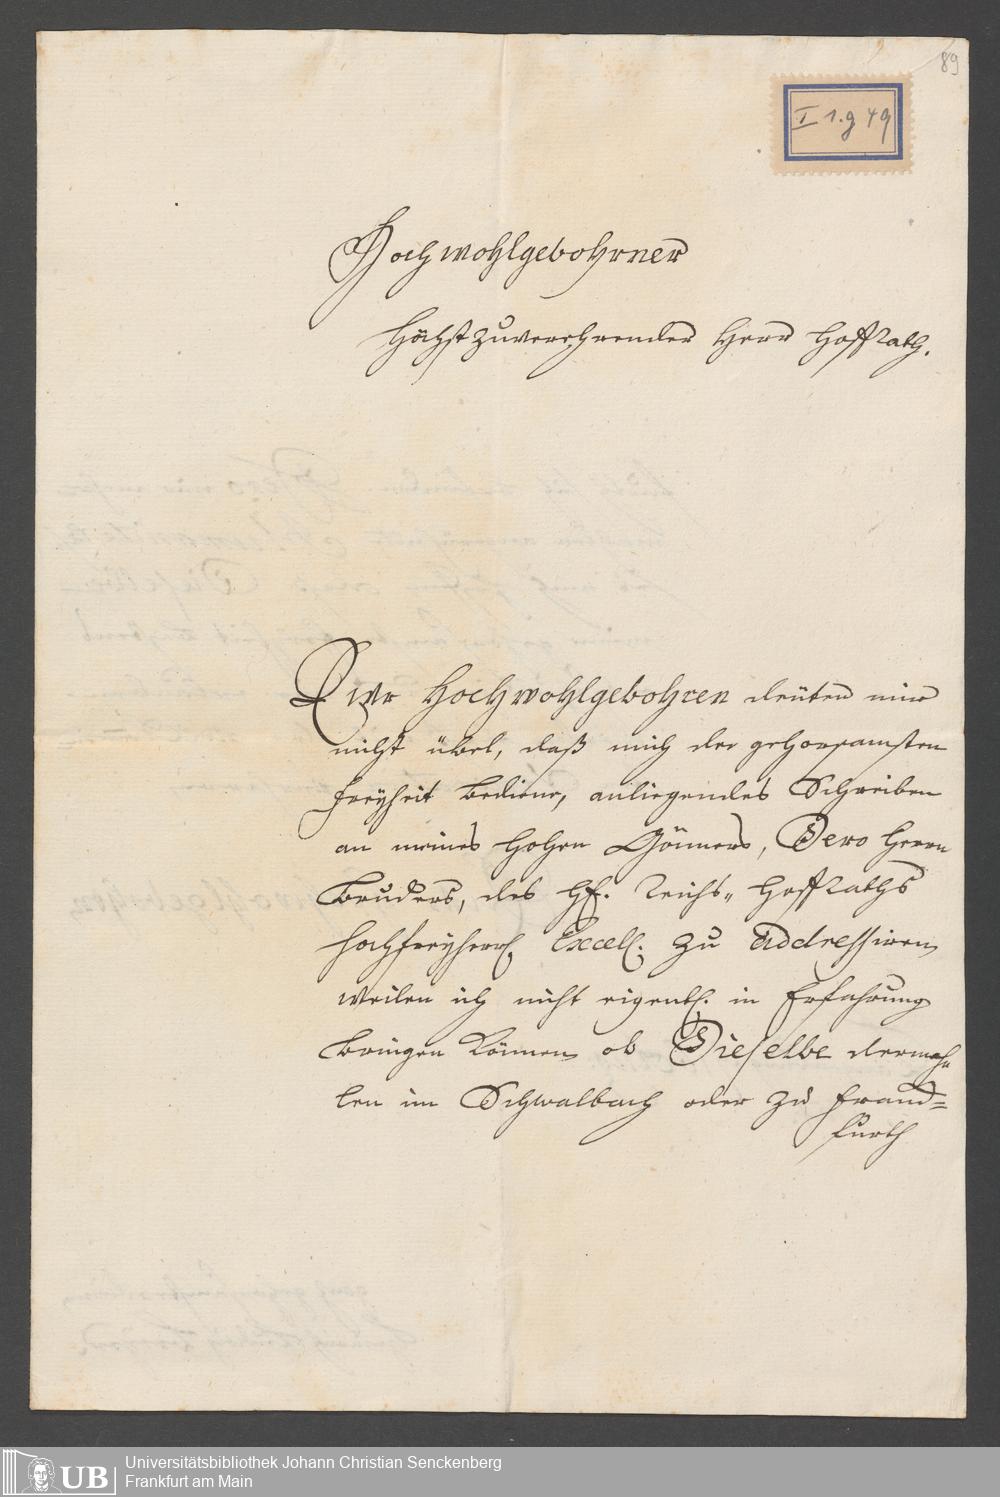 89
I 1. g 49
Hochwohlgebohrner
Höchstzuverehrender Herr Hoffrath.
Ewr Hochwohlgebohren deüten mir
nicht übel, daß mich der gehorsamsten
freyheit bediene, anliegendes Schreiben
an meines hohen Gönners, Dero Herrn
Bruders, des H. Reichs-Hoffraths
hochfreyherrl. Excell. zu addressiren,
weilen ich nicht eigentl. in Erfahrung
bringen können, ob Dieselbe dermah
len im Schwalbach oder zu Franck=
furth
UB
Universitätsbibliothek Johann Christian Senckenberg
Frankfurt am Main